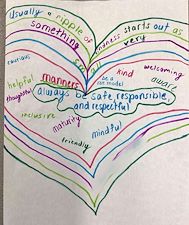 usually a ripple of
kindness starts out as
something
very
small
cautious
kind
welcoming
helpful
manners
be a
role model
aware
thoughtful
always be safe, responsible,
and respectful
inclusive
maturity
mindful
friendly